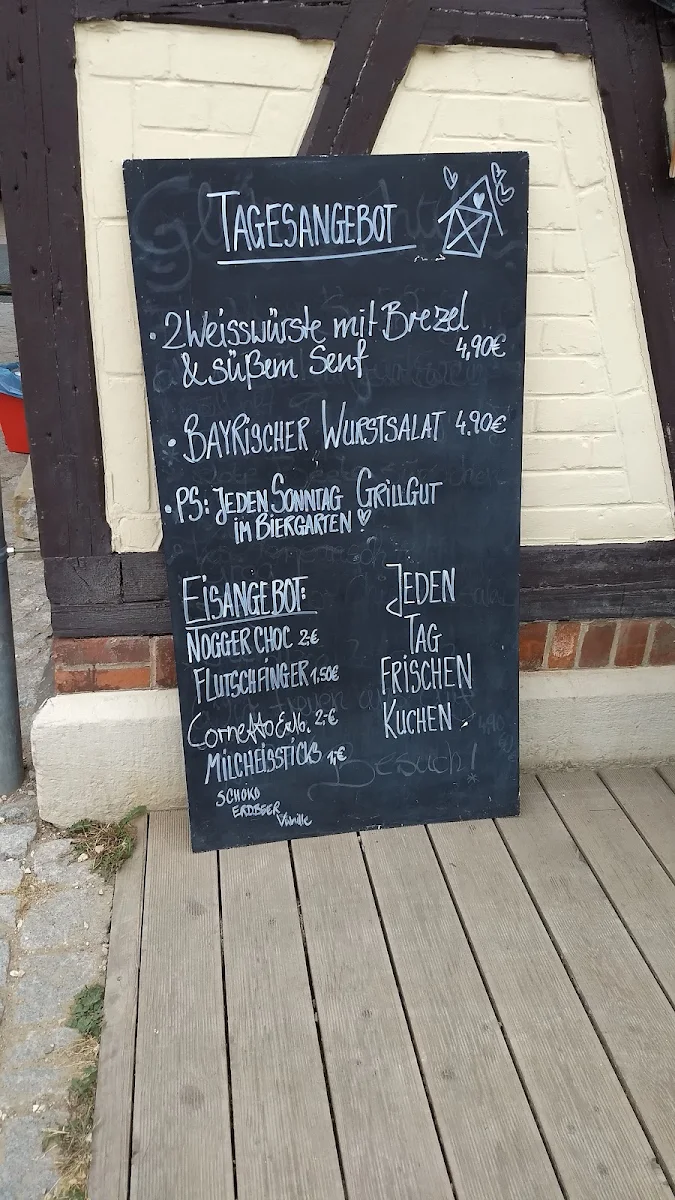 TAGESANGEBOT
• 2 Weisswürste mit Brezel
& süßem Senf 4,90€
• BAYRISCHER WURSTSALAT 4.90€
• PS: JEDEN SONNTAG GRILLGUT
IM BIERGARTEN
EISANGEBOT:
NOGGER CHOC 2,-€
FLUTSCHFINGER 1.50€
Cornetto Erdb. 2,-€
MILCHEISSTICKS 1,-€
SCHOKO
ERDBEER
Vanille
JEDEN
TAG
FRISCHEN
KUCHEN
Besuch!